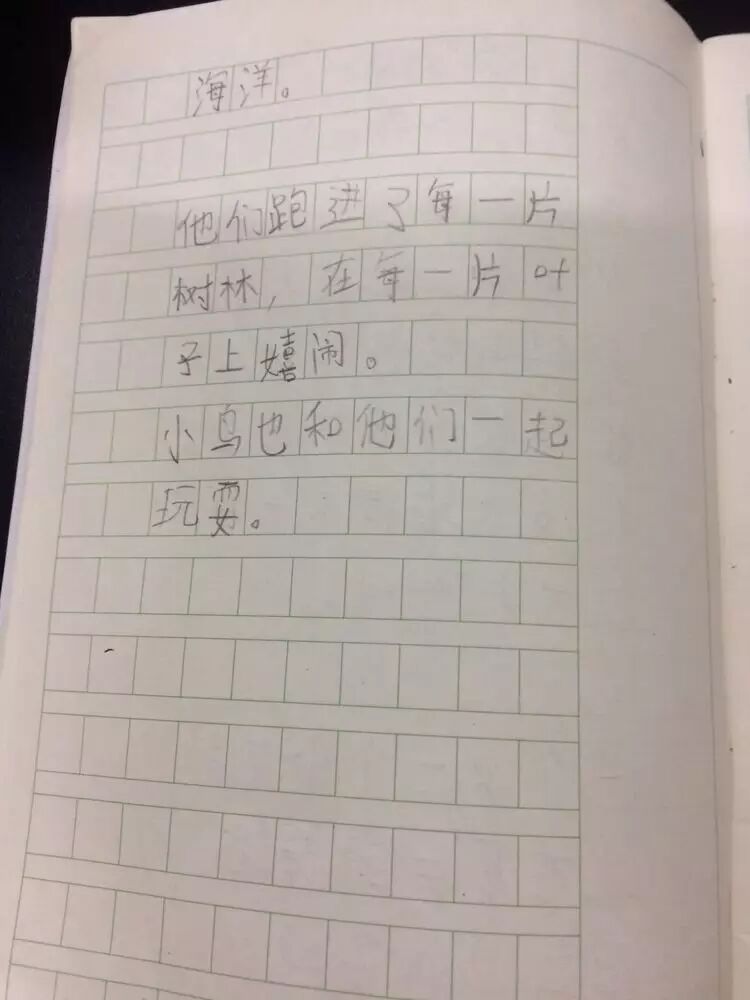 海洋。
他们跑进了每一片
树林，在每一片叶
子上嬉闹。
小鸟也和他们一起
玩耍。